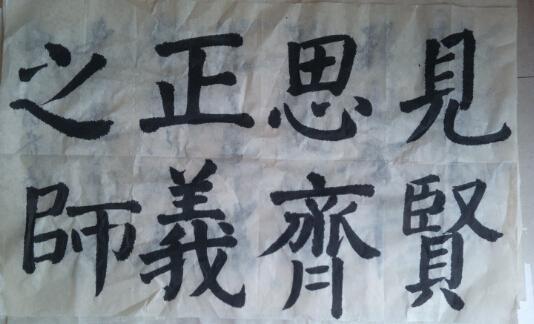 見賢
思齊
正義
之師